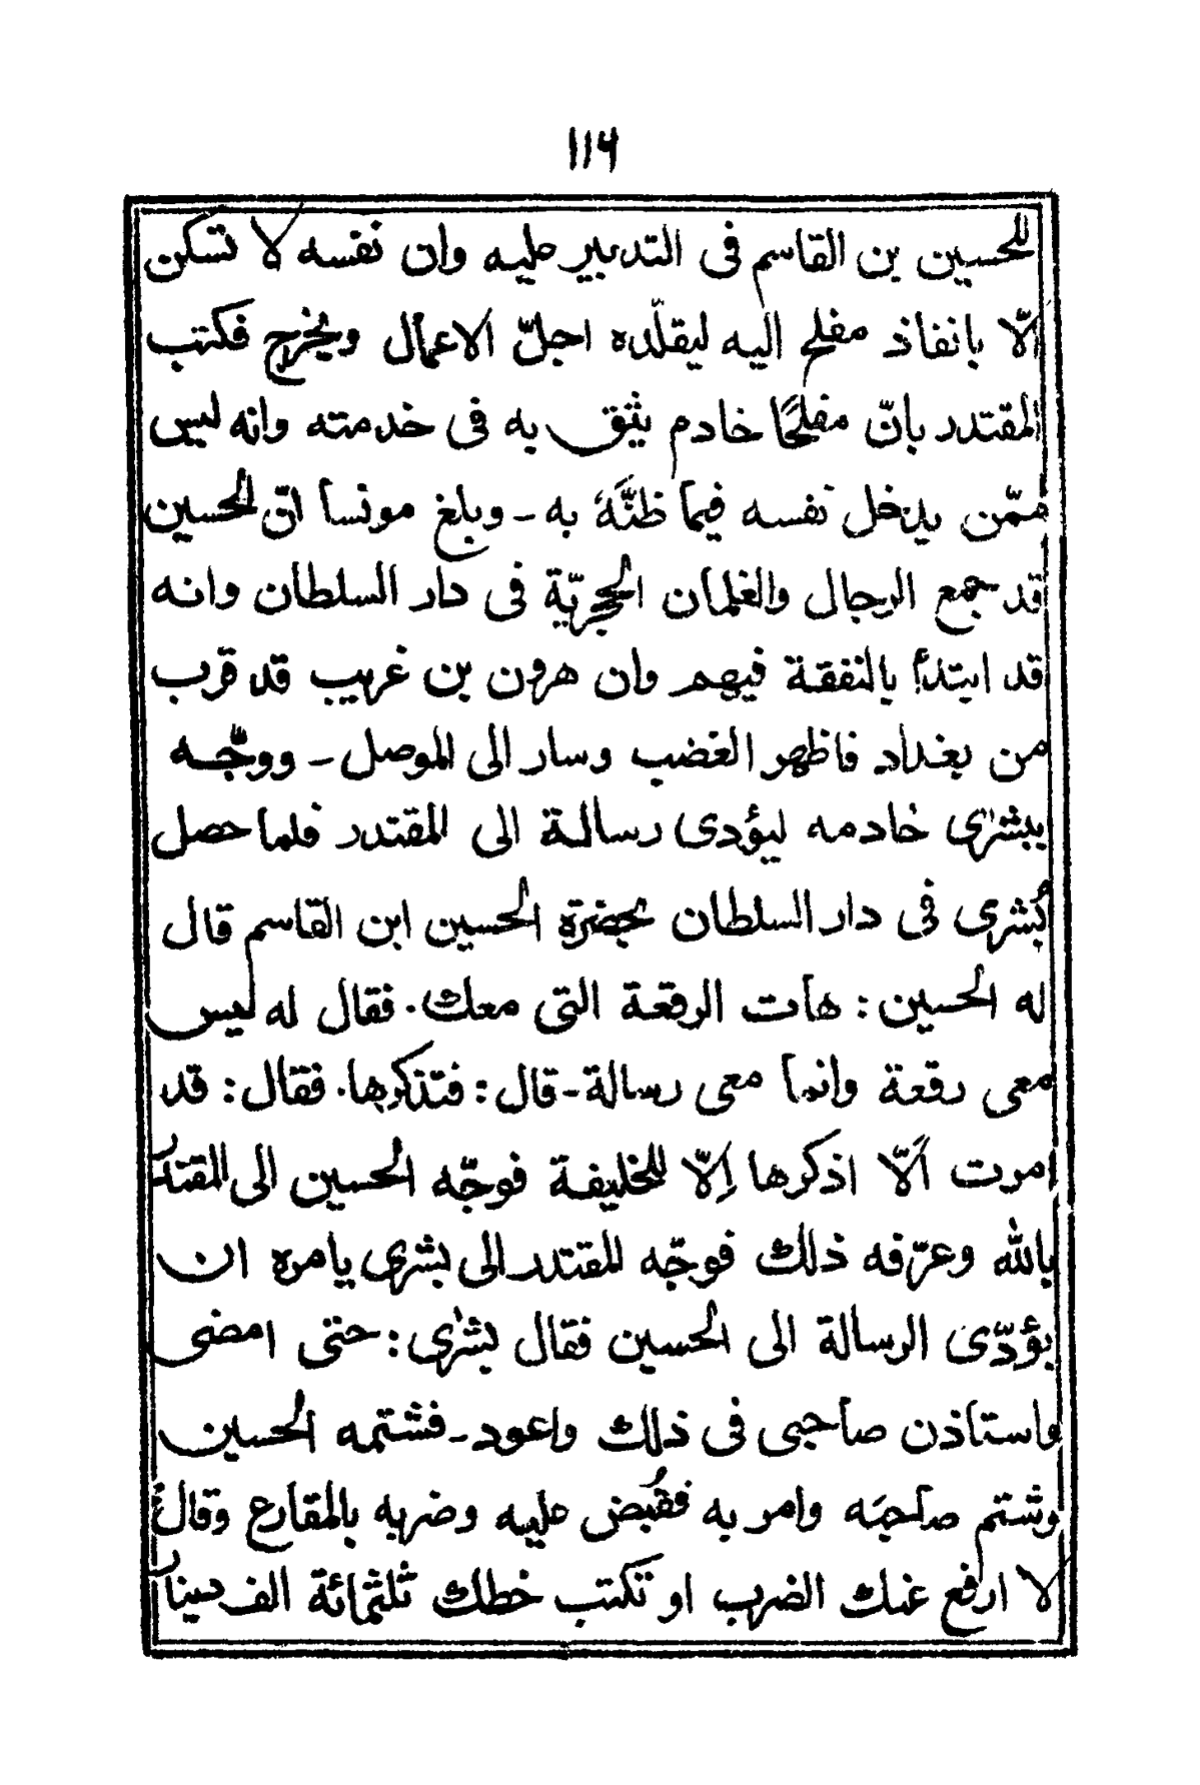 ١١٦
للحسين بن القاسم فى التدبير عليه وان نفسه لا تسكن
الّا بانفاذ مفلح اليه ليقلّده اجلّ الاعمال ويخرج فكتب
المقتدر بانّ مفلحًا خادم يثق به فى خدمته وانه ليس
ممّن يدخل نفسه فيما ظنَّهُ به - وبلغ مونسا انّ الحسين
قد جمع الرجال والغلمان الحجريّة فى دار السلطان وانه
قد ابتدأ بالنفقة فيهم وان هرون بن غريب قد قرب
من بغداد فاظهر الغضب وسار الى الموصل - ووجّه
ببشرٰى خادمه ليؤدى رسالة الى المقتدر فلما حصل
بُشرى فى دار السلطان بحضرة الحسين ابن القاسم قال
له الحسين : هات الرقعة التى معك. فقال له ليس
معى رقعة وانما معى رسالة - قال : فتذكرها. فقال : قد
امرت اَلّا اذكرها اِلّا للخليفة فوجّه الحسين الى المقتدر
بالله وعرّفه ذلك فوجّه المقتدر الى بشرى يامره ان
يؤدّى الرسالة الى الحسين فقال بشرٰى : حتى امضى
واستاذن صاحبى فى ذلك واعود - فشتمه الحسين
وشتم صاحبَه وامر به فقُبض عليه وضربه بالمقارع وقال
لا ارفع عنك الضرب او تكتب خطك بثلثمائة الف دينار